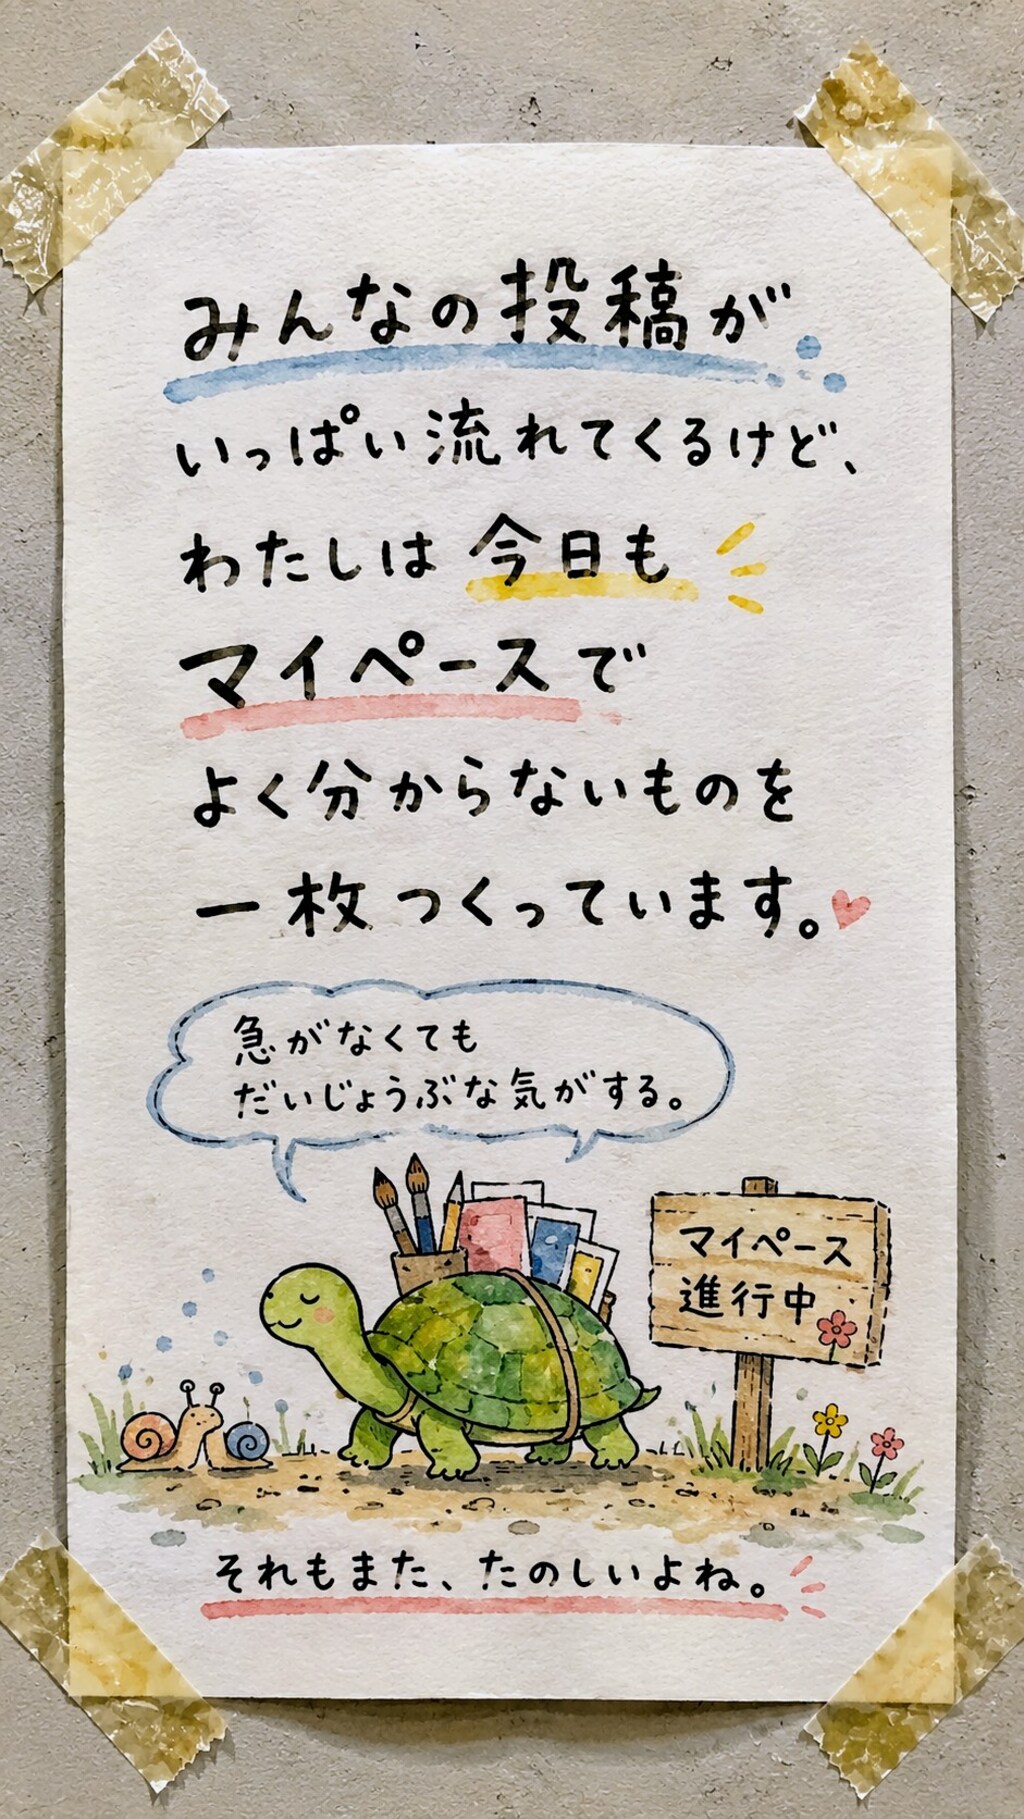 みんなの投稿が
いっぱい流れてくるけど、
わたしは今日も
マイペースで
よく分からないものを
一枚つくっています。
急がなくても
だいじょうぶな気がする。
マイペース
進行中
それもまた、たのしいよね。